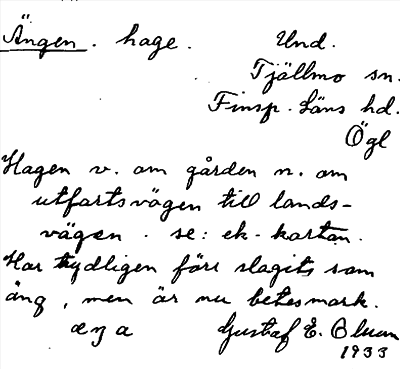 Ängen. hage. Und.
Tjällmo sn.
Finsp. Läns hd.
Ögl
Hagen v. om gården n. om
utfartsvägen till lands-
vägen. se: ek-kartan.
Har tydligen förr slagits som
äng, men är nu betesmark.
Gustaf E. Blum
1933